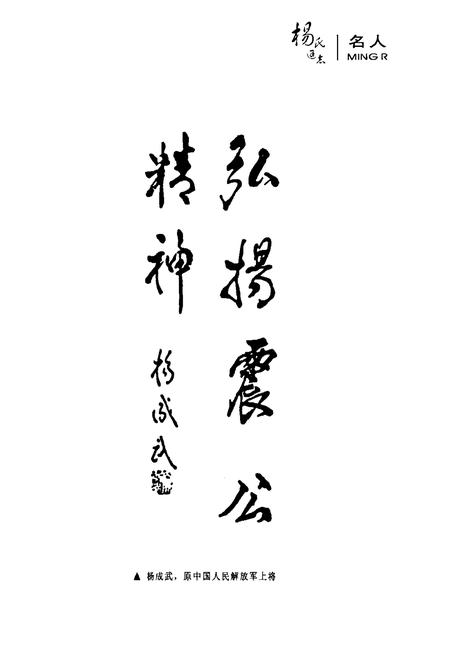 杨氏
名人
MINGR
弘揚震公
精神
杨成武
▲ 杨成武，原中国人民解放军上将